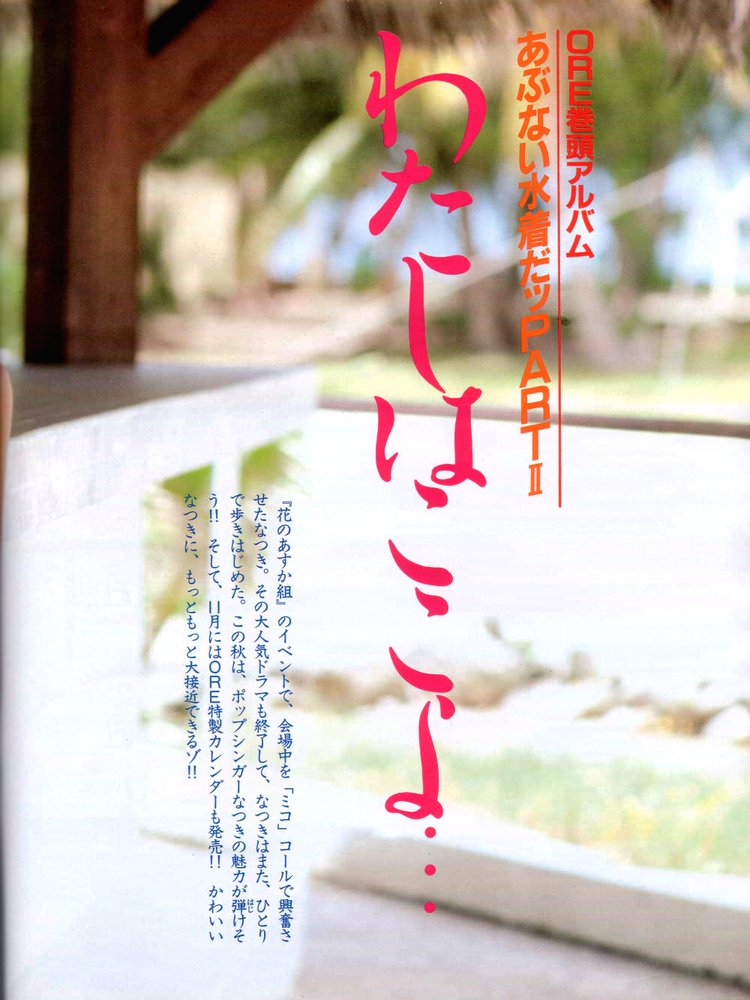 ORE巻頭アルバム
あぶない水着だッPARTⅡ
わたしはここよ・・・
『花のあすか組』のイベントで、会場中を「ミコ」コールで興奮さ
せたなつき。その大人気ドラマも終了して、なつきはまた、ひとり
で歩きはじめた。この秋は、ポップシンガーなつきの魅力が弾けそ
はじ
う!! そして、11月にはORE特製カレンダーも発売!! かわいい
なつきに、もっともっと大接近できるゾ!!